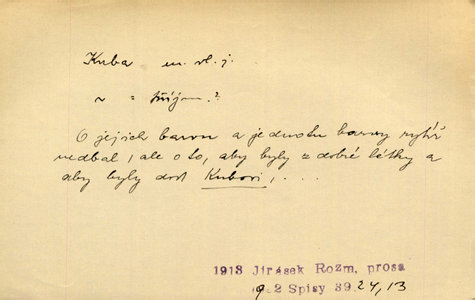 Kuba m. vl. j.
~ = příjm.?
O jejich barvu a jednotu barvy rytíř
nedbal, ale o to, aby byly z dobré látky a
aby byly dost Kubovi, . . .
1913 Jirásek Rozm. prosa
2 Spisy 39 24,13